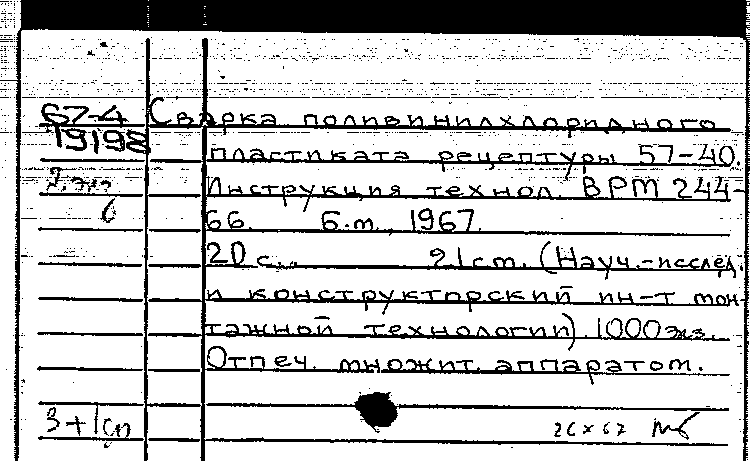 67-4 Сварка поливинилхлоридного
19198
пластиката рецептуры 57-40.
2 экз Инструкция технол. ВРМ 244-
6 66. Б.м., 1967.
20 с. 21 cm. (Науч.-исслед.
и конструкторский ин-т мон-
тажной технологии) 1000 экз.
Отпеч. множит. аппаратом.
3+1сп